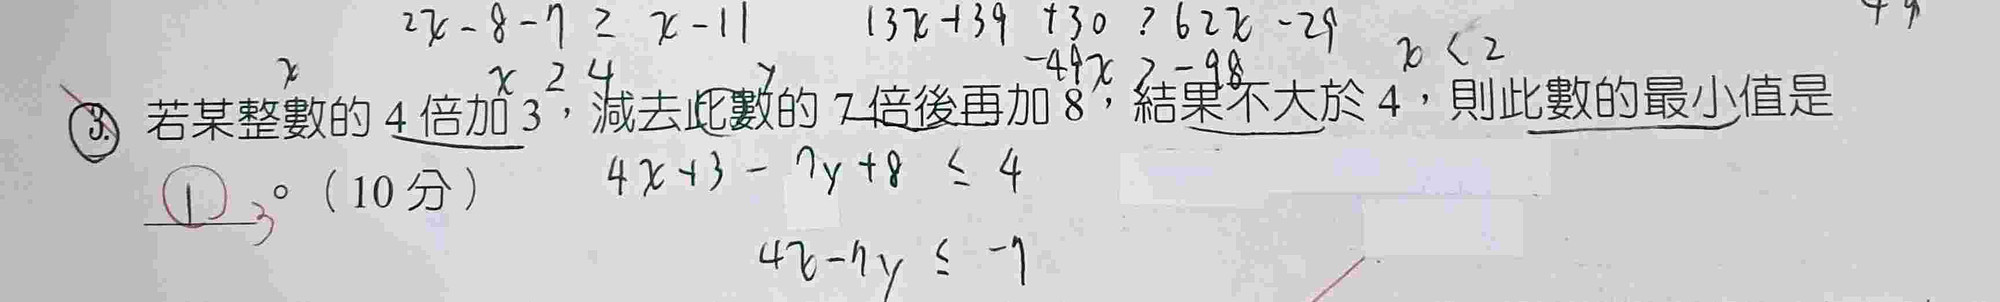 2x-8-7 ≥ x-11 13x+39 +30 > 62x-29
x ≥ 4 -49x > -98 x < 2
x y
3. 若某整數的 4 倍加 3，減去此數的 7 倍後再加 8，結果不大於 4，則此數的最小值是
1 3。（10 分）
4x+3-7y+8 ≤ 4
4x-7y ≤ -7